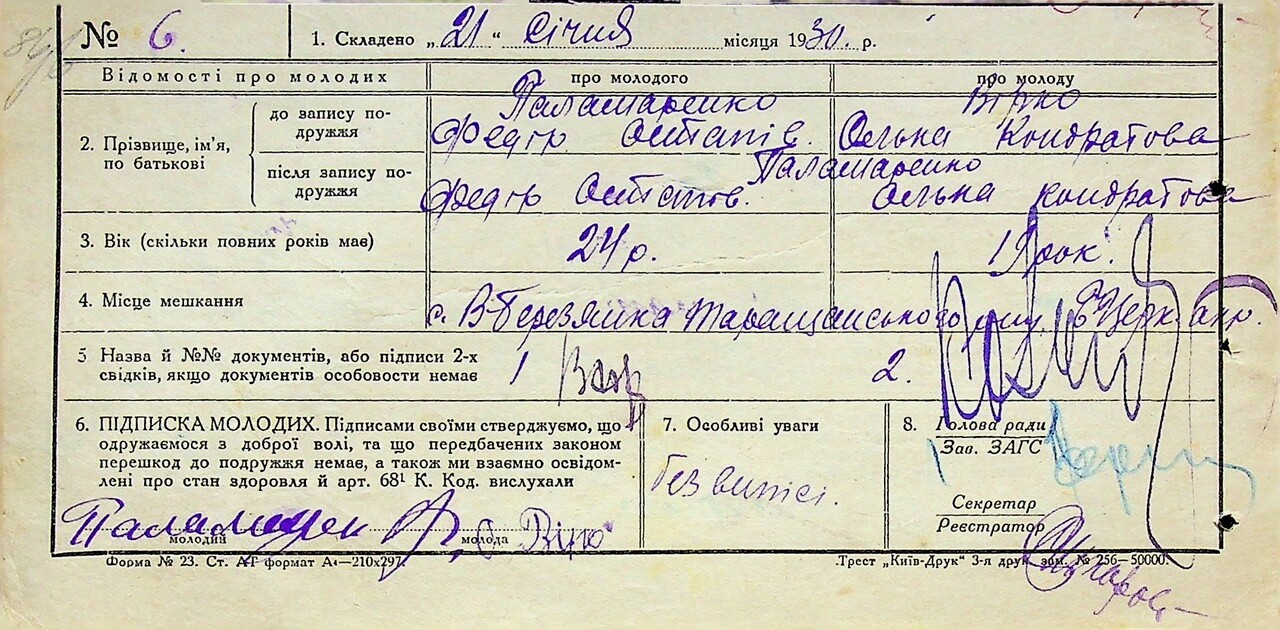 № 6. 1. Складено „21“ Січня місяця 1930. р.
Відомості про молодих про молодого про молоду
2. Прізвище, ім'я, по батькові
до запису подружжя Паламаренко Федір Остапів. Вірко Олька Кондратова
після запису подружжя Федір Остапов. Паламаренко Олька Кондратова
3. Вік (скільки повних років має) 24 р. 19 рок.
4. Місце мешкання с. В-Березянка Таращанського Б Церк. окр.
5 Назва й №№ документів, або підписи 2-х
свідків, якщо документів особовости немає 1 2.
6. ПІДПИСКА МОЛОДИХ. Підписами своїми стверджуємо, що
одружаємося з доброї волі, та що передбачених законом
перешкод до подружжя немає, а також ми взаємно освідом-
лені про стан здоровля й арт. 68¹ К. Код. вислухали
7. Особливі уваги
без
8. Голова ради
Зав. ЗАГС
Секретар
Реєстратор
молодий молода
Форма № 23. Ст. АТ формат А₄—210х297.
Трест „Київ-Друк“ 3-я друк. зам. № 256—50000.